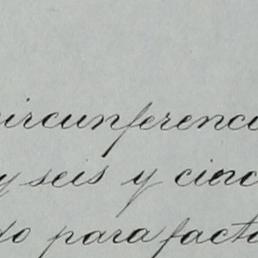 circunferenci
y seis y cinc
do para facto